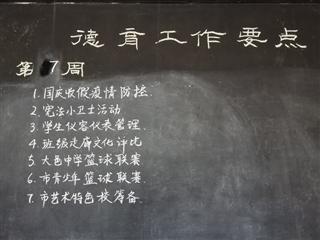 德育工作要点
第7周
1.国庆收假疫情防控.
2.宪法小卫士活动
3.学生仪容仪表管理.
4.班级走廊文化评比
5.大邑中学篮球联赛
6.市青少年篮球联赛.
7.市艺术特色校筹备.